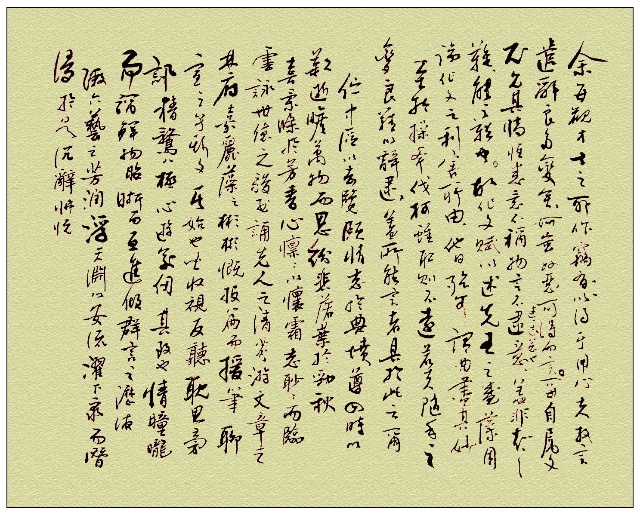 余每觀才士之所作竊有以得其用心夫放言
遣辭良多變矣妍蚩好惡可得而言每自属文
尤見其情恒患意不稱物文不逮意蓋非知之
難能之難也故作文賦以述先士之盛藻因
論作文之利害所由他日殆可謂曲盡其妙
至於操斧伐柯雖取則不遠若夫隨手之
變良難以辭逮蓋所能言者具於此云爾
佇中區以玄覽頤情志於典墳遵四時以
歎逝瞻萬物而思紛悲落葉於勁秋
喜柔條於芳春心懍懍以懷霜志眇眇而臨
雲詠世德之駿烈誦先人之清芬游文章之
林府嘉麗藻之彬彬慨投篇而援筆聊
宣之乎斯文其始也皆收視反聽耽思傍
訊精騖八極心游萬仞其致也情曈曨
而彌鮮物昭晰而互進傾群言之瀝液
漱六藝之芳潤浮天淵以安流濯下泉而潛
浸於是沉辭怫悅